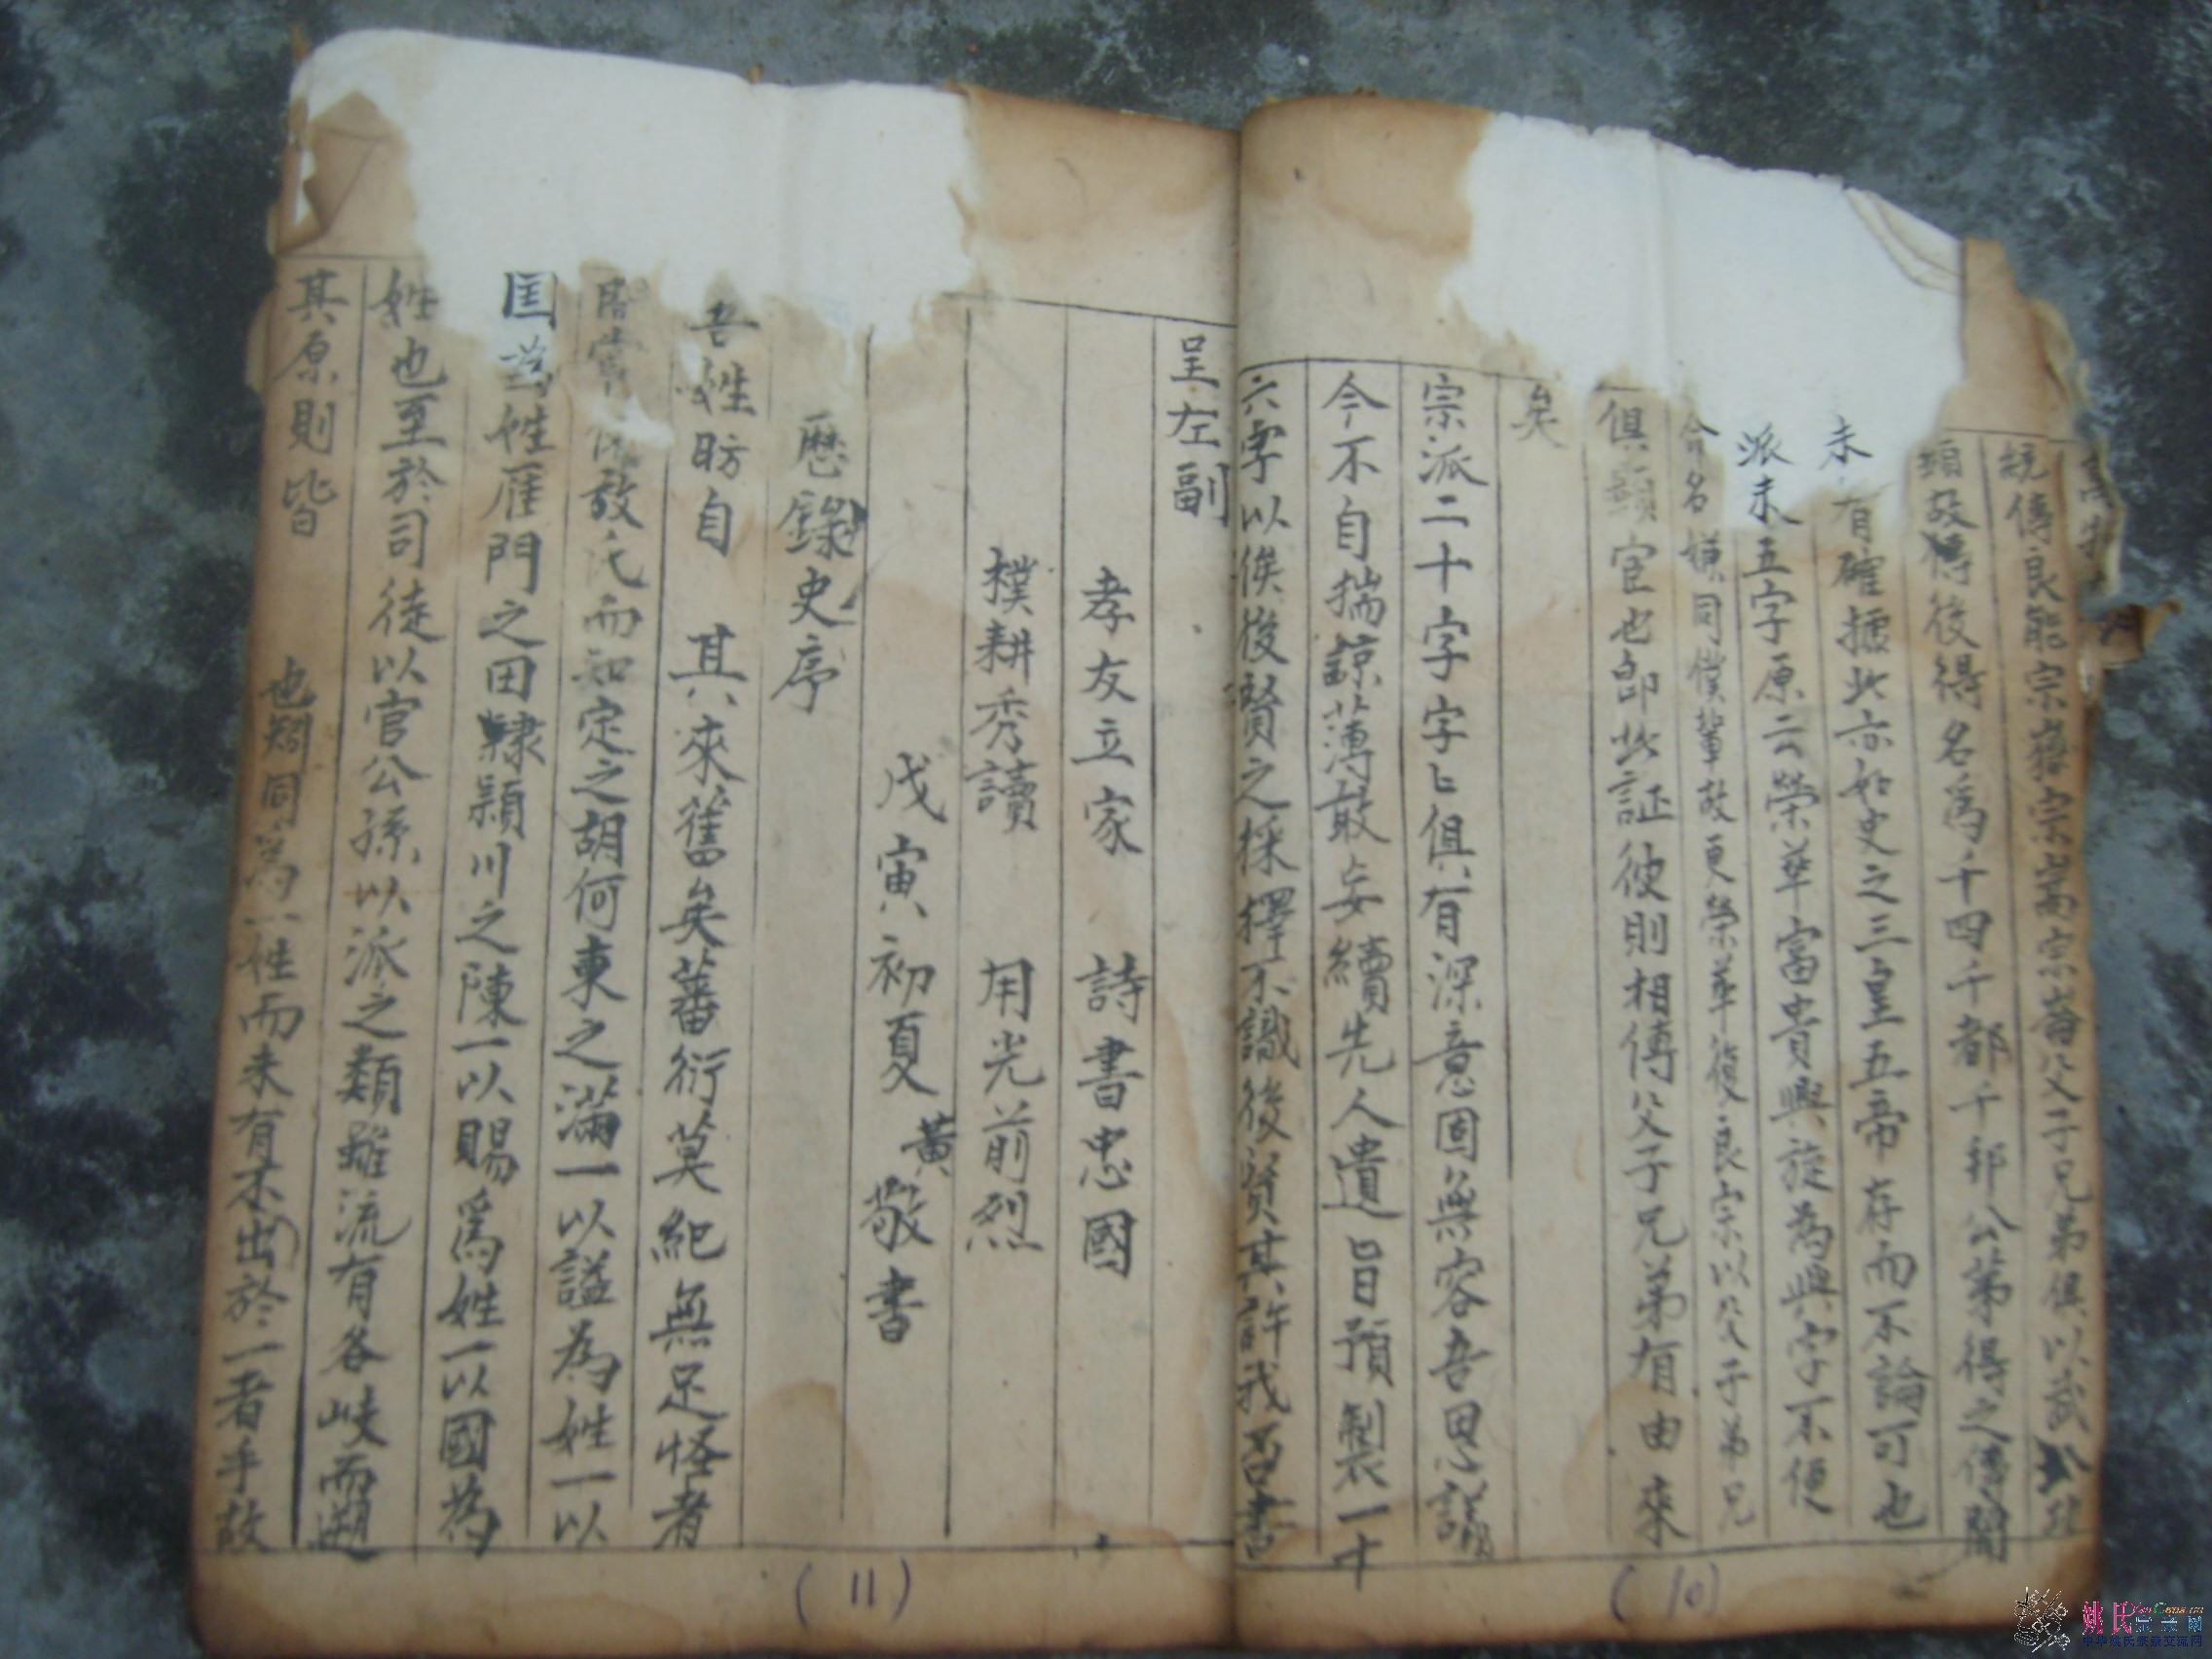 統傳良能宗嶽宗嵩宗崙父子兄弟俱以武
後得名爲千四千都千邦公第得之傳聞
未有確據此亦如史之三皇五帝存而不論可也
派未五字原云榮華富貴興旋為興字不便
命名嫌同僕輩故更榮華復良宗以公子弟兄
俱顯宦也即此証彼則相傳父子兄弟有由來
矣
宗派二十字字匕俱有深意固無容吾思議
今不自揣諒薄敢妄續先人遺旨預製一十
六字以俟後賢之採擇不識後賢其許我否書
呈左副
孝友立家 詩書忠國
樸耕秀讀 用光前烈
戊寅初夏 黃敬書
歷錄史序
吾姓昉自 其來舊矣蕃衍莫紀無足怪者
嘗 氏而知定之胡何東之滿一以謚為姓一以
匡為姓雁門之田隸潁川之陳一以賜爲姓一以國為
姓也至於司徒以官公孫以派之類雖流有各岐而遡
其原則皆 也矧同為一姓而未有不出於一者乎故
(10)
(11)
姚氏宗亲网
中华姚氏宗亲交流网